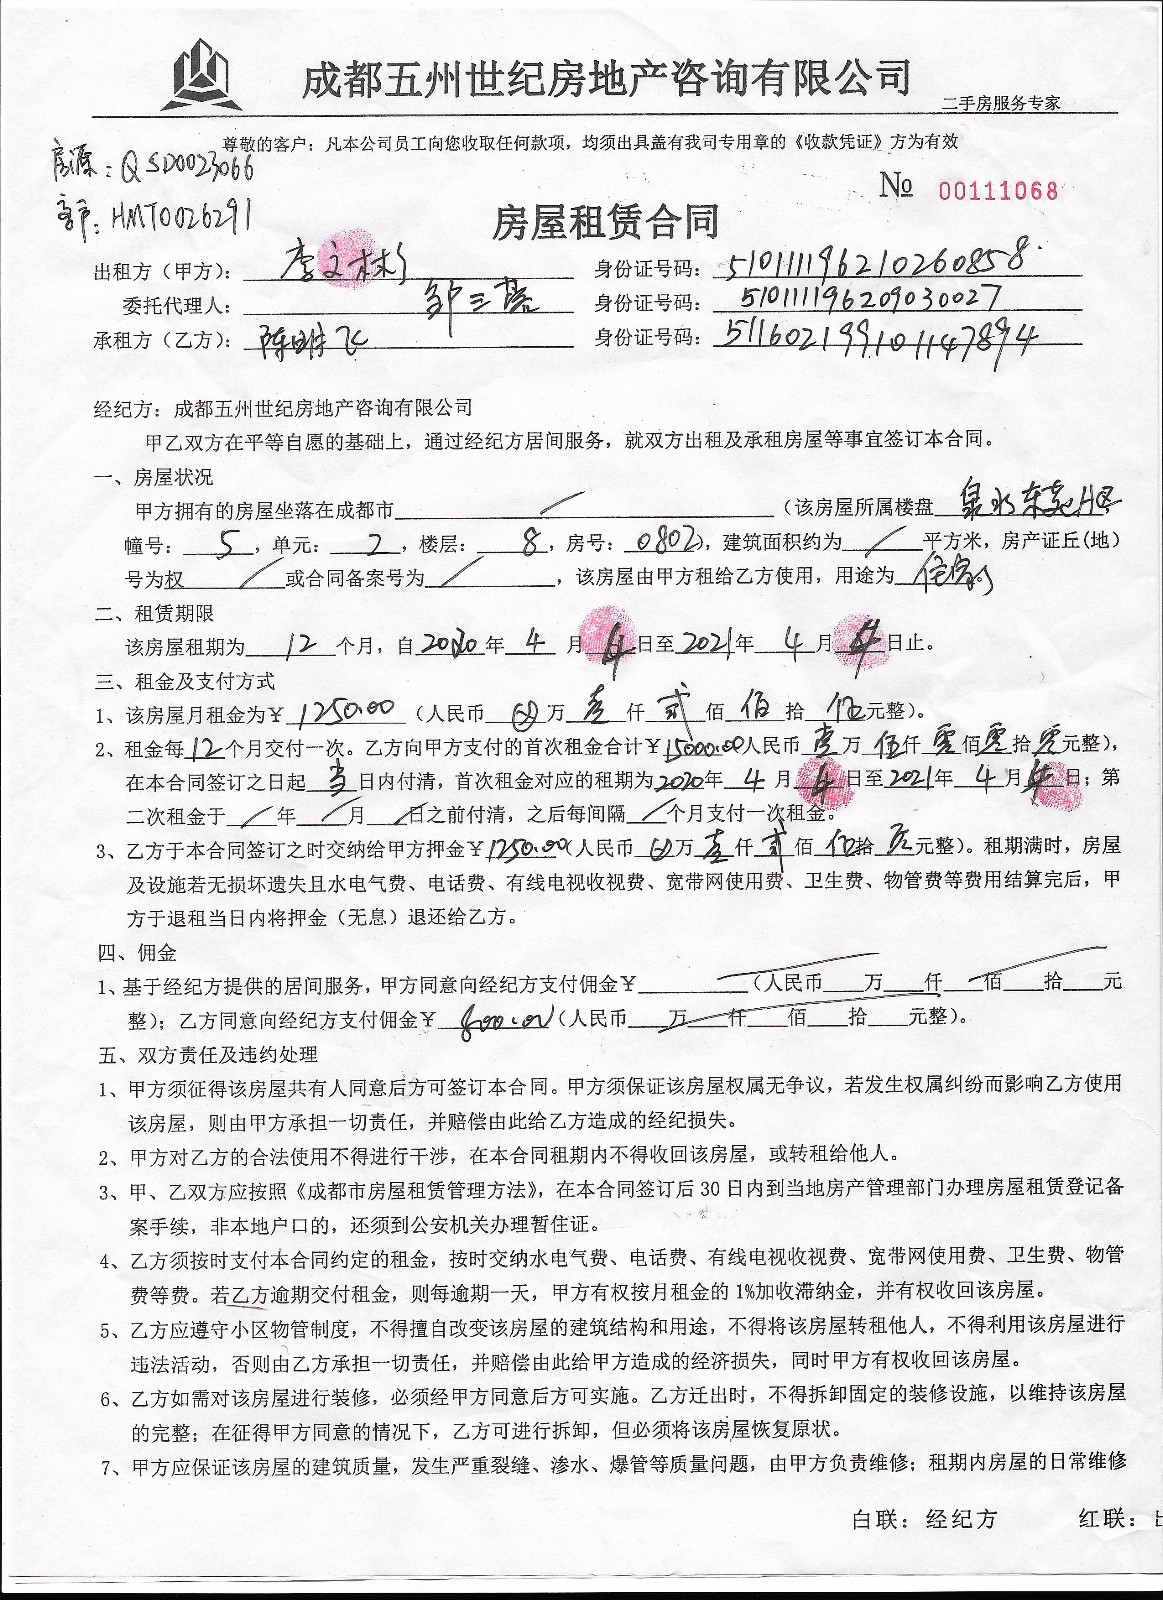 成都五州世纪房地产咨询有限公司
二手房服务专家
尊敬的客户：凡本公司员工向您收取任何款项，均须出具盖有我司专用章的《收款凭证》方为有效
房源：QSD0023066
№ 00111068
客户：HMT0026291
房屋租赁合同
出租方（甲方）：李文彬 身份证号码：510111196210260858
委托代理人：邹三 身份证号码：510111196209030027
承租方（乙方）：陈明飞 身份证号码：511602199101147894
经纪方：成都五州世纪房地产咨询有限公司
甲乙双方在平等自愿的基础上，通过经纪方居间服务，就双方出租及承租房屋等事宜签订本合同。
一、房屋状况
甲方拥有的房屋坐落在成都市 / （该房屋所属楼盘 泉水东苑A区
幢号： 5 ，单元： 2 ，楼层： 8 ，房号：0802），建筑面积约为 / 平方米，房产证丘(地)
号为权 / 或合同备案号为 / ，该房屋由甲方租给乙方使用，用途为 住家
二、租赁期限
该房屋租期为 12 个月，自2020年 4 月 4 日至2021年 4 月 4 日止。
三、租金及支付方式
1、该房屋月租金为￥ 1250.00 （人民币 万 壹 仟 贰 佰 佰 拾 伍元整）。
2、租金每12个月交付一次。乙方向甲方支付的首次租金合计￥15000.00人民币 壹万 伍仟 零佰零拾零元整），
在本合同签订之日起 当 日内付清，首次租金对应的租期为2020年 4 月 4 日至2021年 4 月 4 日；第
二次租金于 / 年 / 月 / 日之前付清，之后每间隔 / 个月支付一次租金。
3、乙方于本合同签订之时交纳给甲方押金￥1250.00（人民币 万壹仟贰佰伍拾 元整）。租期满时，房屋
及设施若无损坏遗失且水电气费、电话费、有线电视收视费、宽带网使用费、卫生费、物管费等费用结算完后，甲
方于退租当日内将押金（无息）退还给乙方。
四、佣金
1、基于经纪方提供的居间服务，甲方同意向经纪方支付佣金￥ （人民币 万 仟 佰 拾 元
整）；乙方同意向经纪方支付佣金￥ 800.00（人民币 万 仟 佰 拾 元整）。
五、双方责任及违约处理
1、甲方须征得该房屋共有人同意后方可签订本合同。甲方须保证该房屋权属无争议，若发生权属纠纷而影响乙方使用
该房屋，则由甲方承担一切责任，并赔偿由此给乙方造成的经纪损失。
2、甲方对乙方的合法使用不得进行干涉，在本合同租期内不得收回该房屋，或转租给他人。
3、甲、乙双方应按照《成都市房屋租赁管理方法》，在本合同签订后30日内到当地房产管理部门办理房屋租赁登记备
案手续，非本地户口的，还须到公安机关办理暂住证。
4、乙方须按时支付本合同约定的租金，按时交纳水电气费、电话费、有线电视收视费、宽带网使用费、卫生费、物管
费等费。若乙方逾期交付租金，则每逾期一天，甲方有权按月租金的1%加收滞纳金，并有权收回该房屋。
5、乙方应遵守小区物管制度，不得擅自改变该房屋的建筑结构和用途，不得将该房屋转租他人，不得利用该房屋进行
违法活动，否则由乙方承担一切责任，并赔偿由此给甲方造成的经济损失，同时甲方有权收回该房屋。
6、乙方如需对该房屋进行装修，必须经甲方同意后方可实施。乙方迁出时，不得拆卸固定的装修设施，以维持该房屋
的完整；在征得甲方同意的情况下，乙方可进行拆卸，但必须将该房屋恢复原状。
7、甲方应保证该房屋的建筑质量，发生严重裂缝、渗水、爆管等质量问题，由甲方负责维修；租期内房屋的日常维修
白联：经纪方 红联：